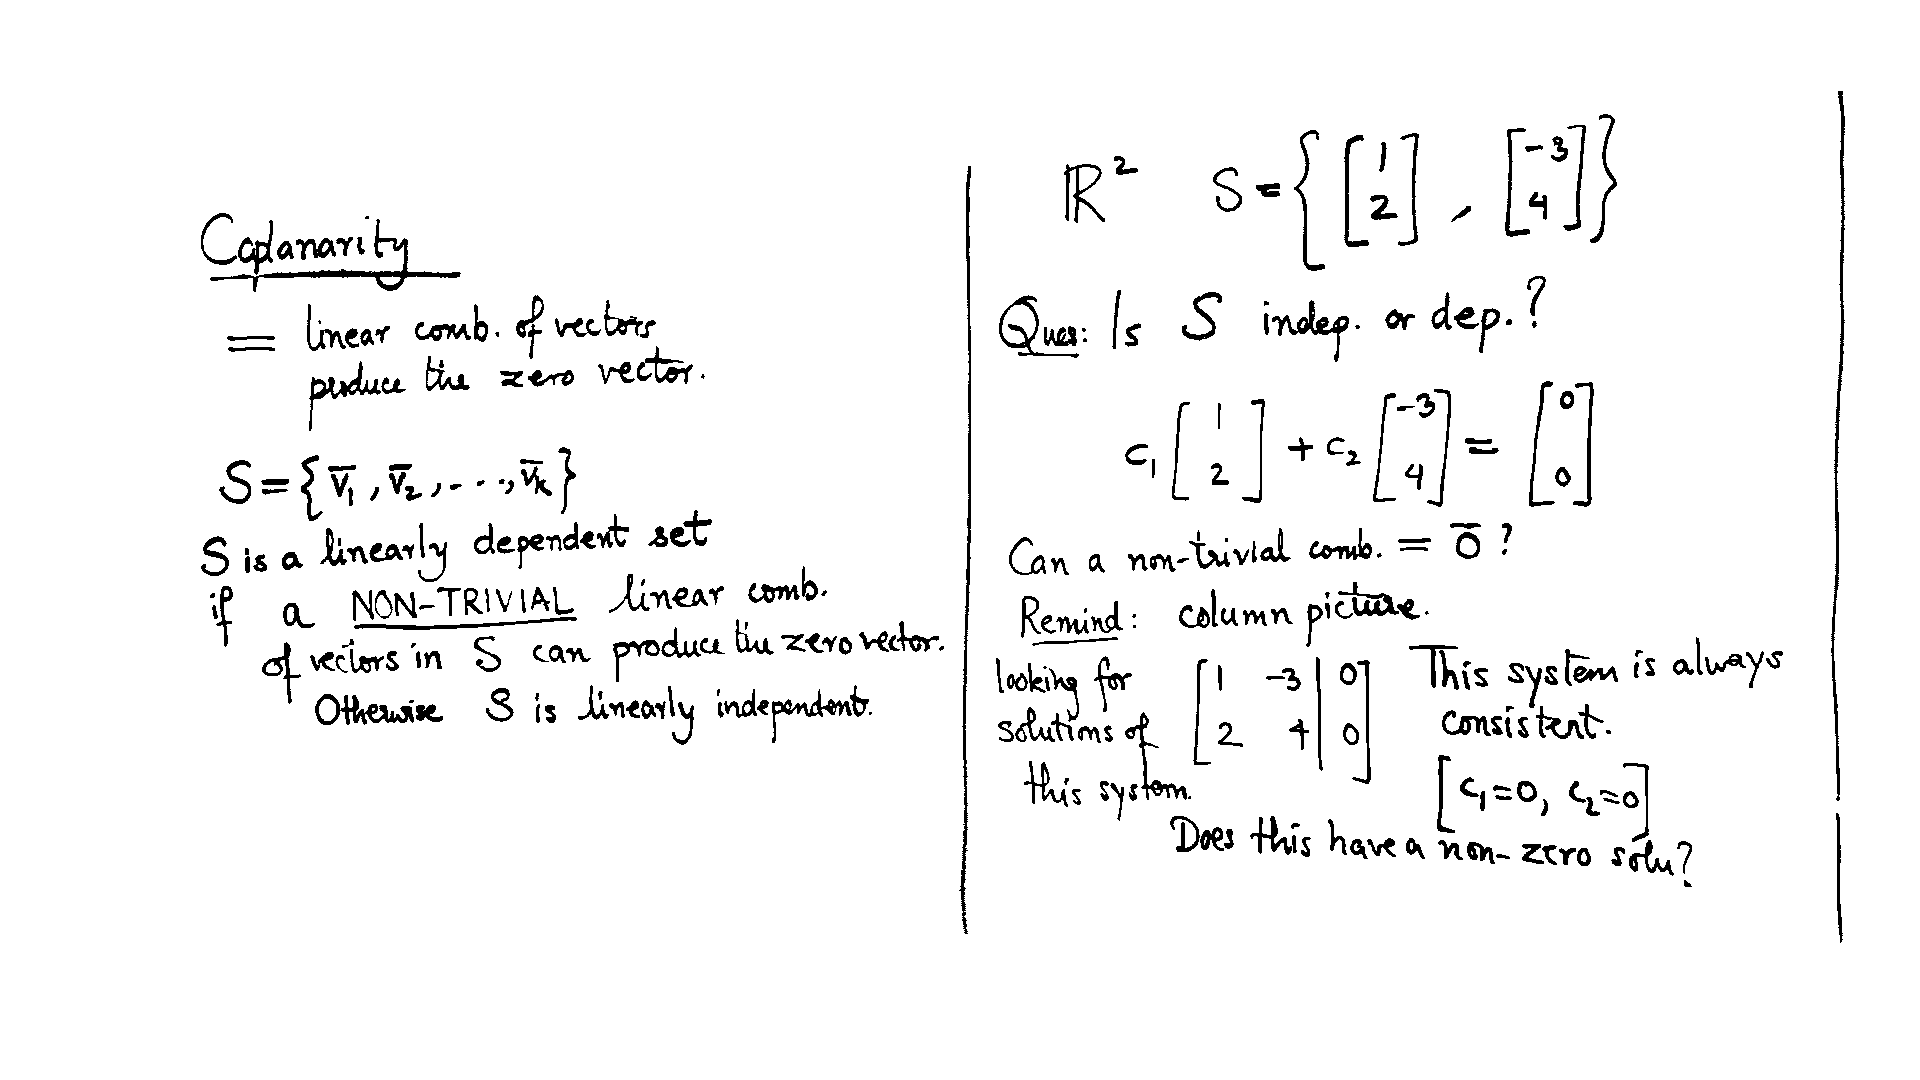 Coplanarity
= linear comb. of vectors
produce the zero vector.
S = { v̅₁ , v̅₂ , . . . , v̅ₖ }
S is a linearly dependent set
if a NON-TRIVIAL linear comb.
of vectors in S can produce the zero vector.
Otherwise S is linearly independent.
ℝ² S = { [1 2] , [-3 4] }
Ques: Is S indep. or dep. ?
c₁ [1 2] + c₂ [-3 4] = [0 0]
Can a non-trivial comb. = 0̅ ?
Remind : column picture.
looking for
solutions of
this system.
[ 1 -3 | 0 ]
[ 2 4 | 0 ]
This system is always
consistent.
[ c₁=0, c₂=0 ]
Does this have a non-zero solu?